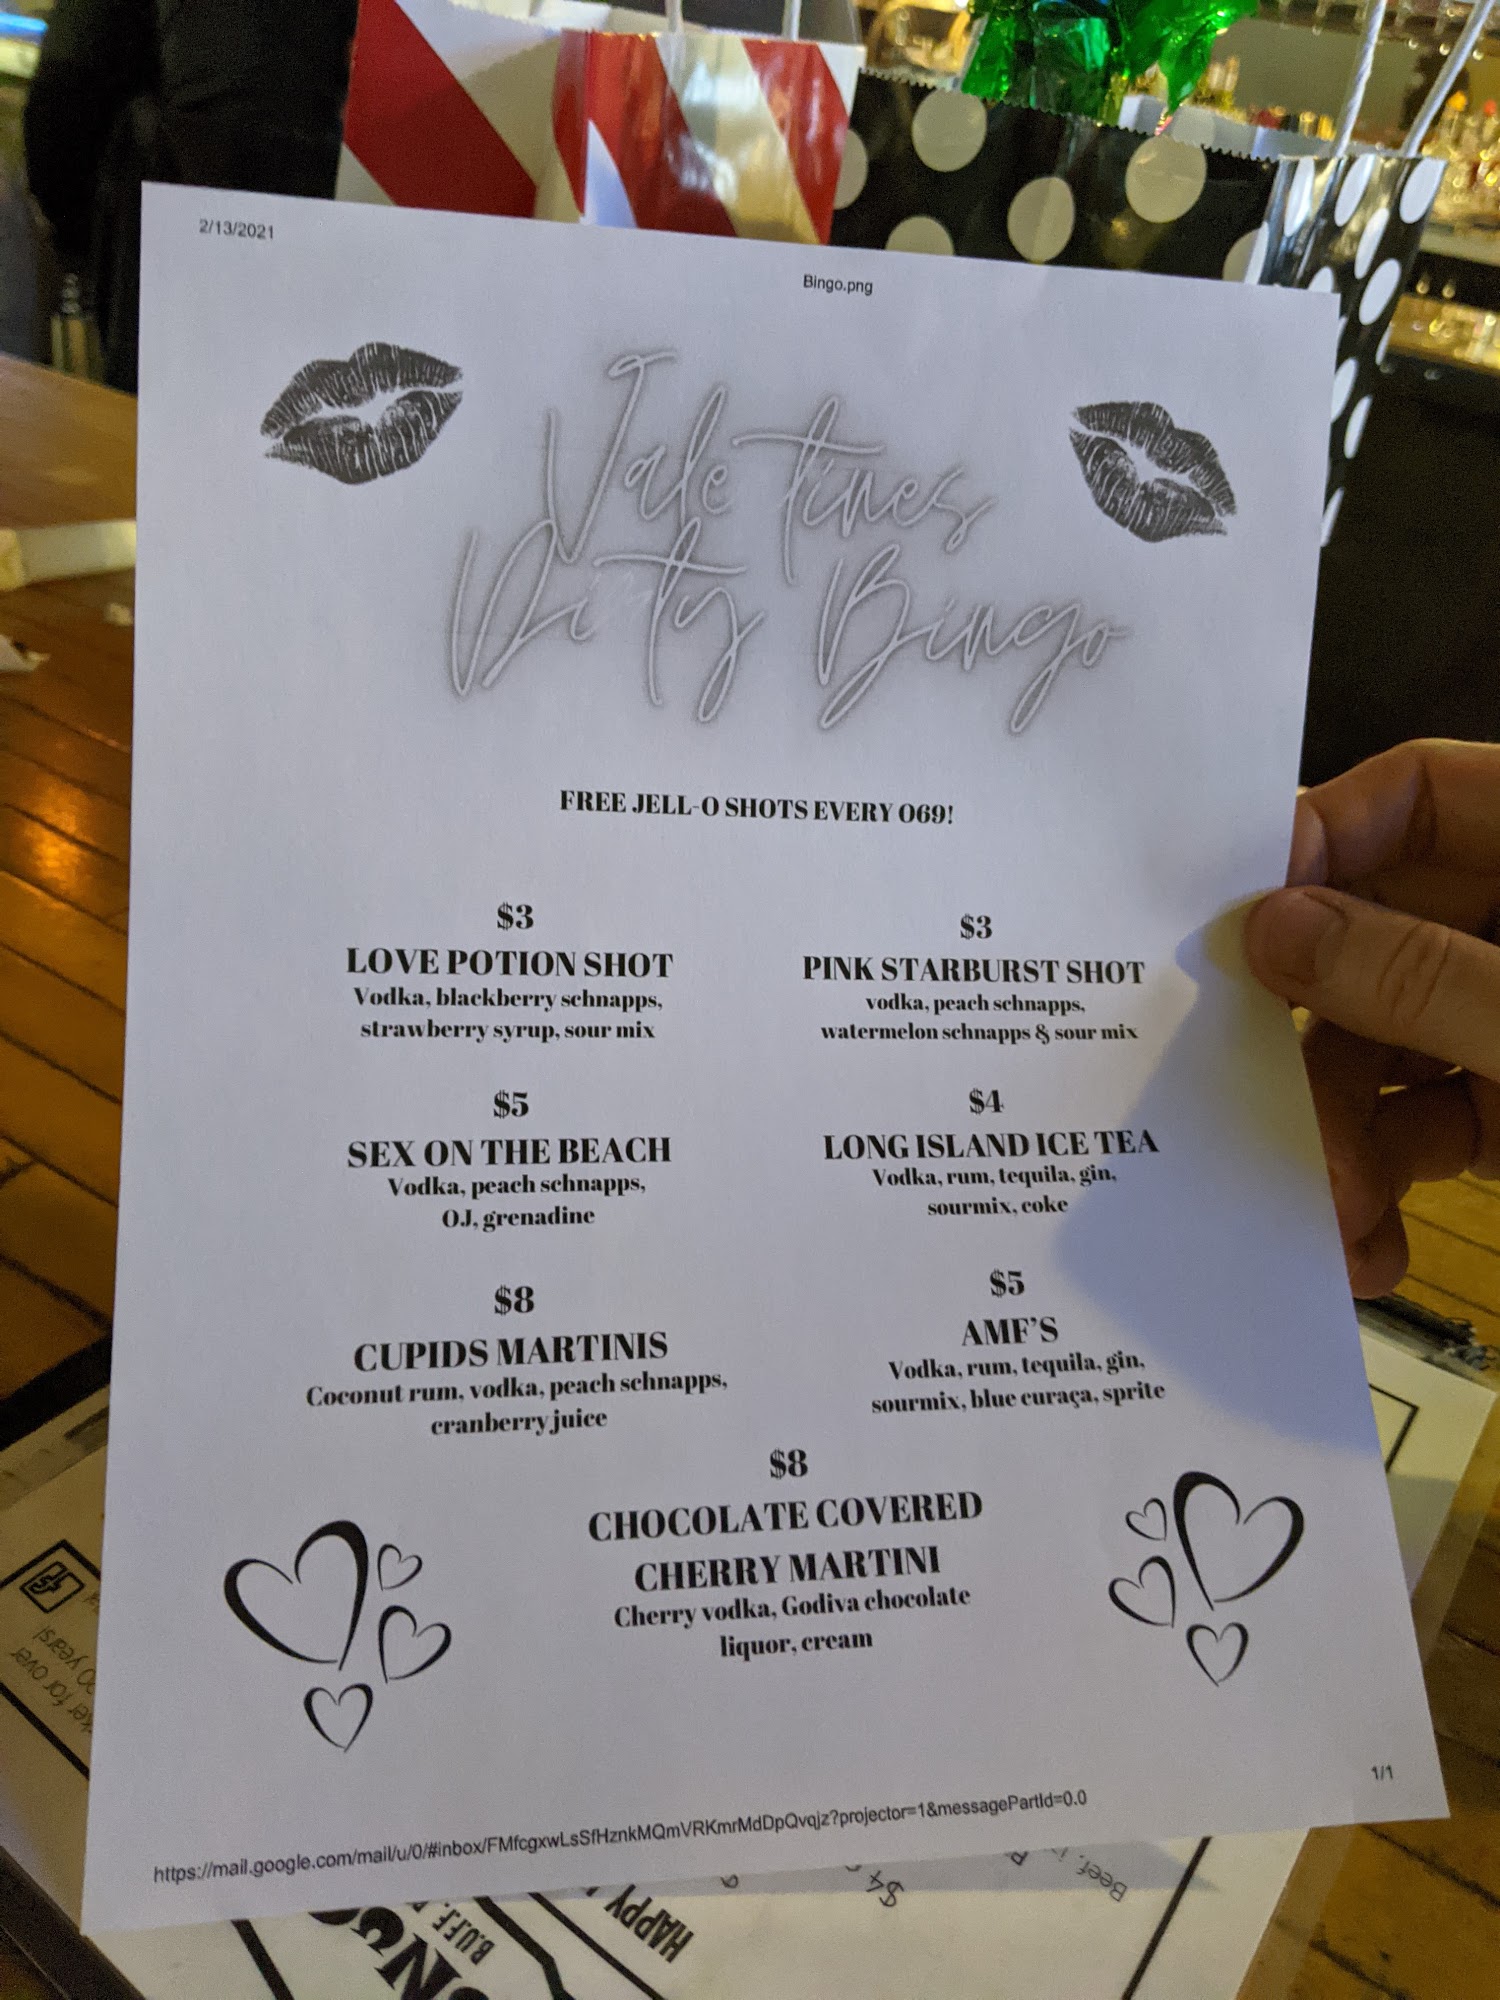 2/13/2021
Bingo.png
Vale tines
Di ty Bingo
FREE JELL-O SHOTS EVERY O69!
$3
LOVE POTION SHOT
Vodka, blackberry schnapps,
strawberry syrup, sour mix
$3
PINK STARBURST SHOT
vodka, peach schnapps,
watermelon schnapps & sour mix
$5
SEX ON THE BEACH
Vodka, peach schnapps,
OJ, grenadine
$4
LONG ISLAND ICE TEA
Vodka, rum, tequila, gin,
sourmix, coke
$8
CUPIDS MARTINIS
Coconut rum, vodka, peach schnapps,
cranberry juice
$5
AMF'S
Vodka, rum, tequila, gin,
sourmix, blue curaça, sprite
$8
CHOCOLATE COVERED
CHERRY MARTINI
Cherry vodka, Godiva chocolate
liquor, cream
1/1
https://mail.google.com/mail/u/0/#inbox/FMfcgxwLsSfHznkMQmVRKmrMdDpQvqjz?projector=1&messagePartId=0.0
for over
years!
HAPPY
B.U.F.F.
$4
Beef,